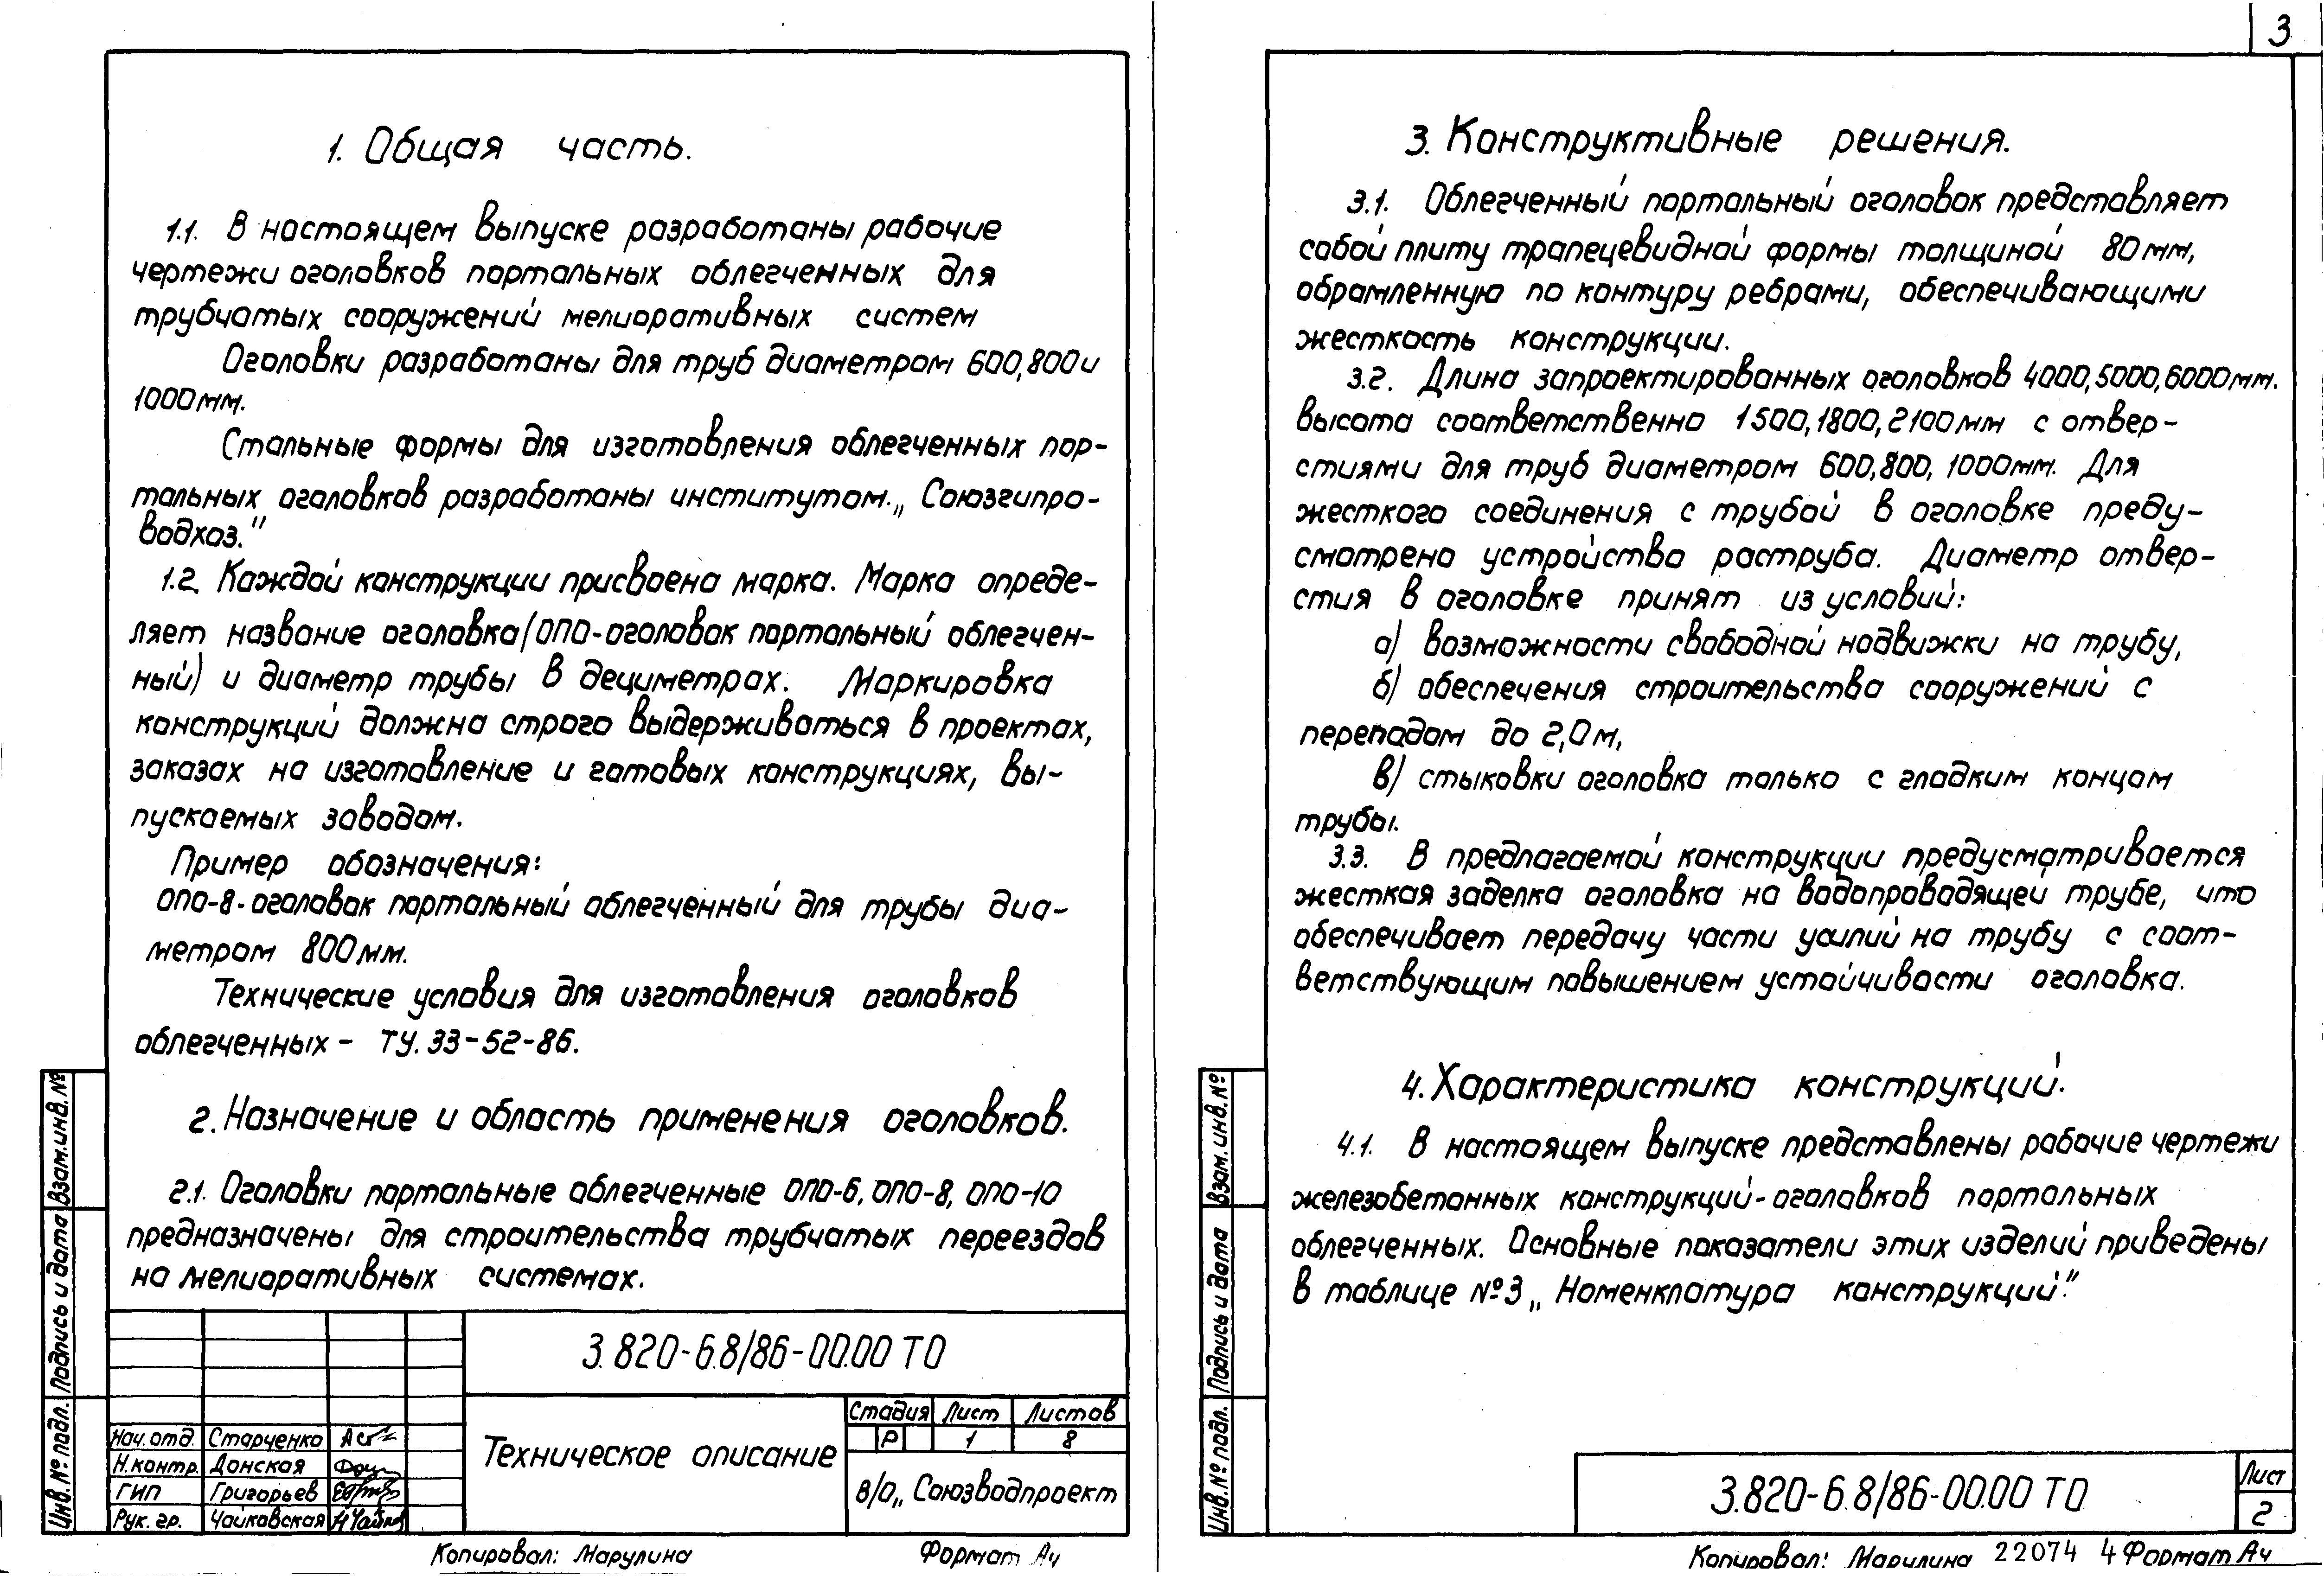 1. Общая часть.
1.1. В настоящем выпуске разработаны рабочие
чертежи оголовков портальных облегченных для
трубчатых сооружений мелиоративных систем
Оголовки разработаны для труб диаметром 600,800 и
1000 мм.
Стальные формы для изготовления облегченных пор-
тальных оголовков разработаны институтом „Союзгипро-
водхоз."
1.2. Каждой конструкции присвоена марка. Марка опреде-
ляет название оголовка (ОПО-оголовок портальный облегчен-
ный) и диаметр трубы в дециметрах. Маркировка
конструкций должна строго выдерживаться в проектах,
заказах на изготовление и готовых конструкциях, вы-
пускаемых заводом.
Пример обозначения:
ОПО-8-оголовок портальный облегченный для трубы диа-
метром 800 мм.
Технические условия для изготовления оголовков
облегченных - ТУ. 33-52-86.
2. Назначение и область применения оголовков.
2.1. Оголовки портальные облегченные ОПО-6, ОПО-8, ОПО-10
предназначены для строительства трубчатых переездов
на мелиоративных системах.
3.820-6.8/86-00.00 ТО
Стадия Лист Листов
Р 1 8
Техническое описание
В/О „Союзводпроект
Нач. отд. Старченко
Н. контр. Донская
ГИП Григорьев
Рук. гр. Чайковская
Взам. инв. №
Подпись и дата
Инв. № подл.
Копировал: Марулина Формат А4
3
3. Конструктивные решения.
3.1. Облегченный портальный оголовок представляет
собой плиту трапецевидной формы толщиной 80 мм,
обрамленную по контуру ребрами, обеспечивающими
жесткость конструкции.
3.2. Длина запроектированных оголовков 4000, 5000, 6000 мм.
высота соответственно 1500, 1800, 2100 мм с отвер-
стиями для труб диаметром 600, 800, 1000 мм. Для
жесткого соединения с трубой в оголовке преду-
смотрено устройство раструба. Диаметр отвер-
стия в оголовке принят из условий:
а) возможности свободной надвижки на трубу,
б) обеспечения строительства сооружений с
перепадом до 2,0 м,
в) стыковки оголовка только с гладким концом
трубы.
3.3. В предлагаемой конструкции предусматривается
жесткая заделка оголовка на водопроводящей трубе, что
обеспечивает передачу части усилий на трубу с соот-
ветствующим повышением устойчивости оголовка.
4. Характеристика конструкций.
4.1. В настоящем выпуске представлены рабочие чертежи
железобетонных конструкций-оголовков портальных
облегченных. Основные показатели этих изделий приведены
в таблице №3 „Номенклатура конструкций."
3.820-6.8/86-00.00 ТО
Лист
2
Взам. инв. №
Подпись и дата
Инв. № подл.
Копировал: Марилина 22074 4 Формат А4